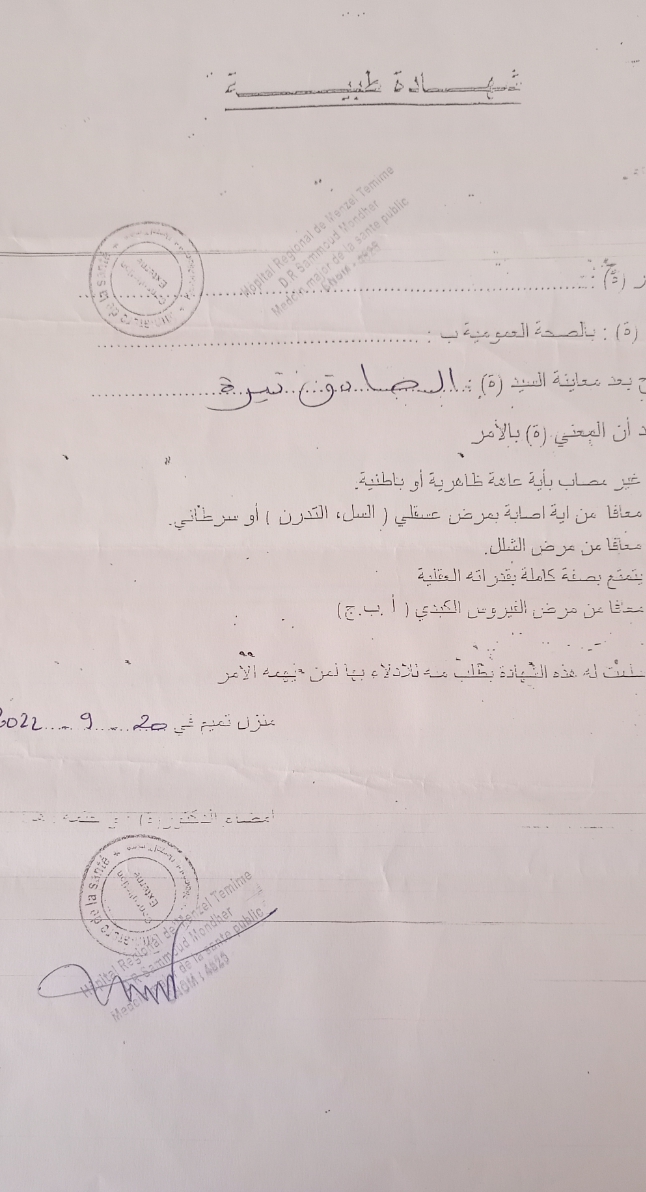 شهادة طبية
Hopital Regional de Menzel Temime
D.R Sammoud Mondher
Medcin major de la sante public
(ة) :
(ة) : بالصحة العمومية ب :
بعد معاينة السيد (ة) : الصادق تيرة
أن المعني (ة) بالأمر
غير مصاب بأية عاهة ظاهرية أو باطنية.
معافا من اية اصابة بمرض عقلي ( السل، التدرن ) أو سرطاني.
معافا من مرض الشلل.
يتمتع بصفة كاملة بقدراته العقلية
معافا من مرض الفيروس الكبدي ( أ .ب.ج)
سلمت له هذه الشهادة بطلب منه للادلاء بها لمن يهمه الأمر
منزل تميم في 20 - 9 - 2022
امضاء الدكتور(ة)
de la santé
Consultation
Externe
Hôpital Régional de Menzel Temime
D.R Sammoud Mondher
Medcin major de la sante public